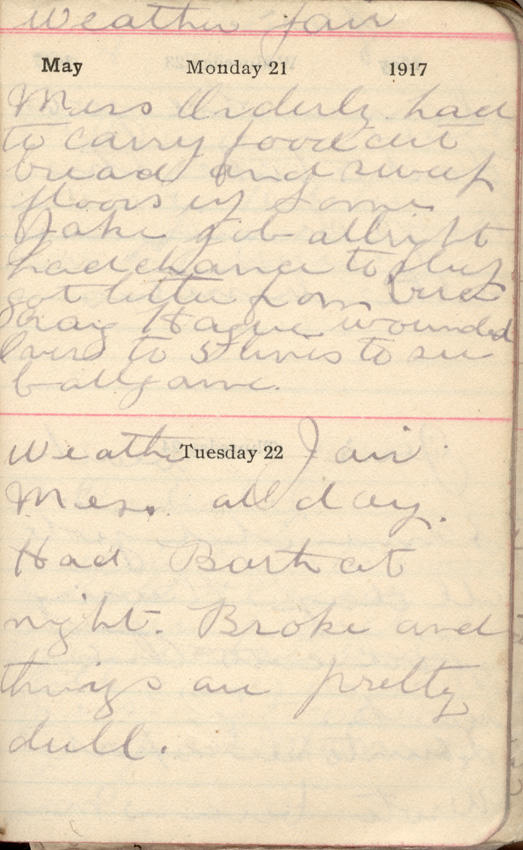 Weather fair
May Monday 21 1917
Mess Orderly had
to carry food cut
bread and sweep
floors up some
Jake job allright
had chance to sleep
got letter from
say Hague wounded
over to St Ives to see
ballgame.
Weather Fair
Tuesday 22
Mess. all day.
Had Bath at
night. Broke and
things are pretty
dull.